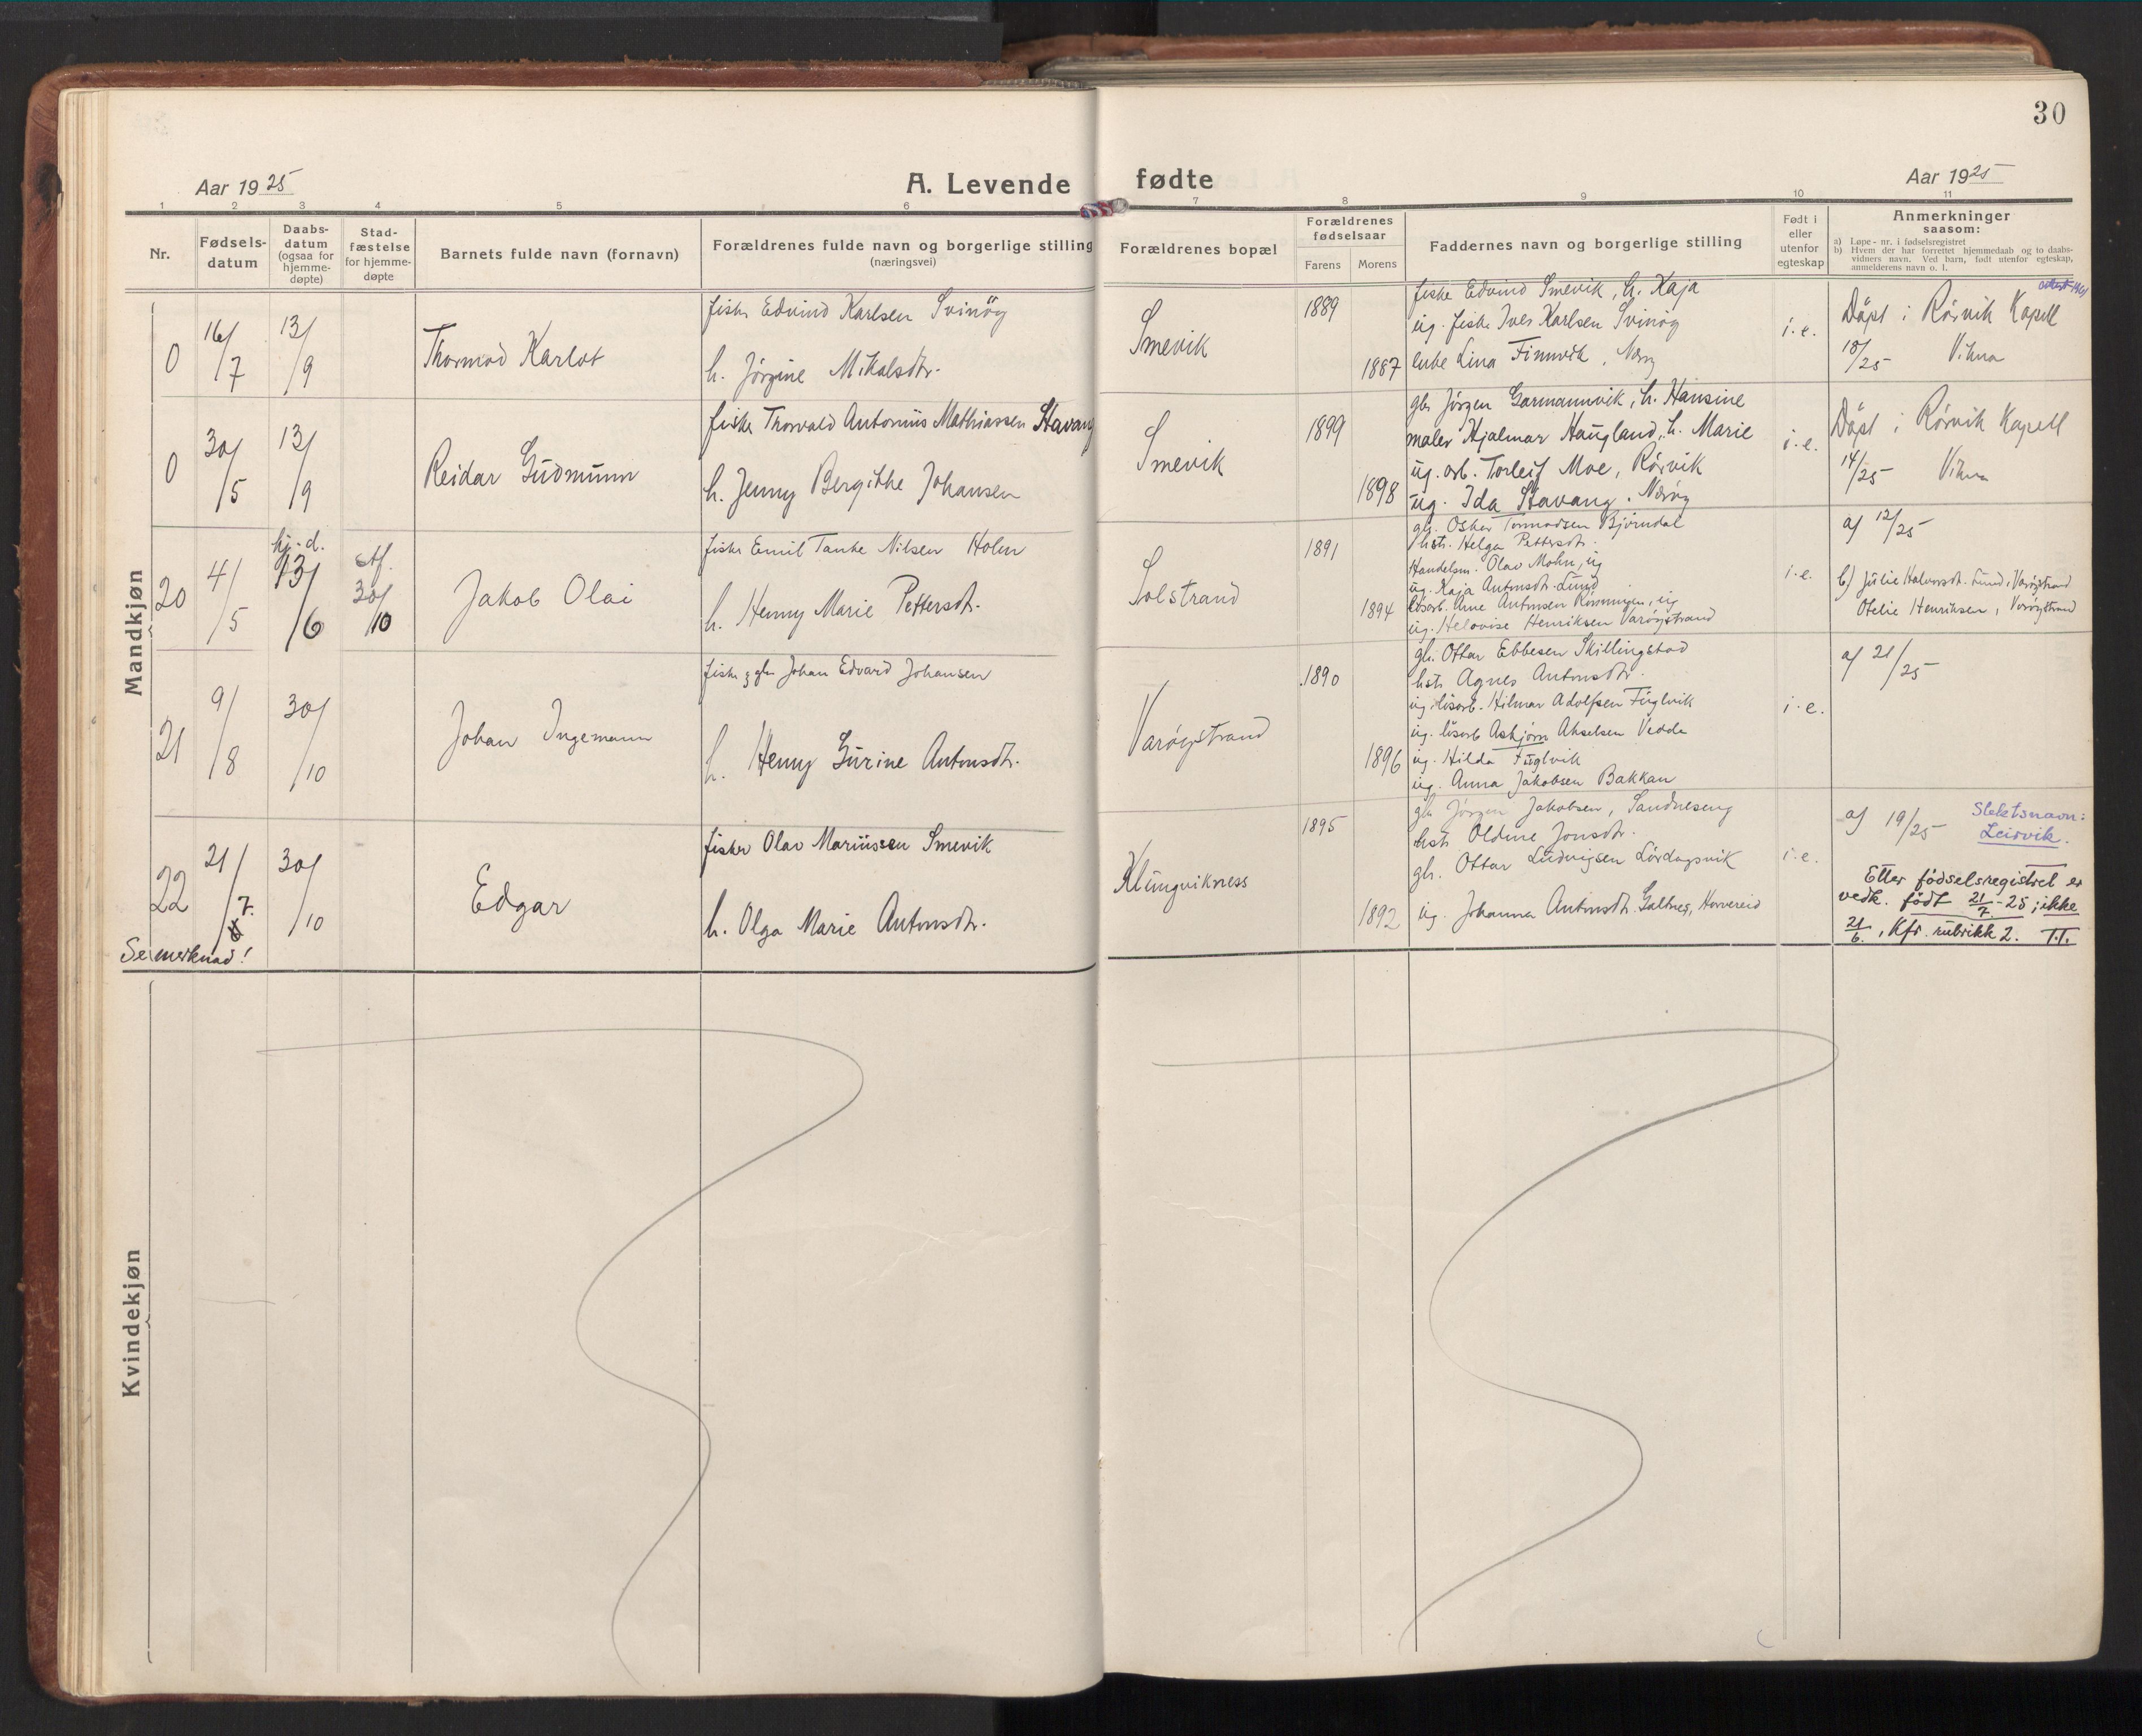 30
Aar 1925
A. Levende fødte
Aar 1925
1 2 3 4 5 6 7 8 9 10 11
Nr.
Fødsels-
datum
Daabs-
datum
(ogsaa for
hjemme-
døpte)
Stad-
fæstelse
for hjemme-
døpte
Barnets fulde navn (fornavn)
Forældrenes fulde navn og borgerlige stilling
(næringsvei)
Forældrenes bopæl
Forældrenes
fødselsaar
Farens Morens
Faddernes navn og borgerlige stilling
Født i
eller
utenfor
egteskap
Anmerkninger
saasom:
a) Løpe-nr. i fødselsregistret
b) Hvem der har forrettet hjemmedaab og to daabs-
vidners navn. Ved barn, født utenfor egteskap,
anmelderens navn o. l.
Mandkjøn
0
16/7
13/9
Thormod Karlot
fisker Edvind Karlsen Svinöy
h. Jörgine Mikalsdtr.
Smevik
1889
1887
fisker Edvind Smevik, h. Kaja
ug. fisker Iver Karlsen Svinöy
enke Lina Finnvik, Nærøy
i.e.
Döpt i Rörvik Kapell
18/25 Vikna
0
30/5
13/9
Reidar Gudmunn
fisker Thorvald Antonius Mathiassen Stavang
h. Jenny Bergithe Johansen
Smevik
1899
1898
gbr Jörgen Garmannvik, h. Hansine
maler Hjalmar Haugland, h. Marie
ug. arb. Torleif Moe, Rörvik
ug. Ida Stavang, Nærøy
i.e.
Döpt i Rörvik Kapell
14/25 Vikna
20
4/5
hj.d.
13/6
stf.
30/10
Jakob Olai
fisker Emil Tanke Nilsen Holm
h. Henny Marie Pettersdtr.
Solstrand
1891
1894
gbr. Oskar Tormodsen Björndal
hstr. Helga Pettersdtr.
Handelsm. Olav Mohn, ug
ug. Kaja Antonsdtr. Lund
lösarb. Arne Antonsen Rönningen, ug
ug. Helovise Henriksen Varöystrand
i.e.
a) 12/25
b) Julie Halvorsdtr. Lund, Varöystrand
Otelie Henriksen, Varöystrand
21
9/8
30/10
Johan Ingemann
fisker g gbr Johan Edvard Johansen
h. Henny Gurine Antonsdtr.
Varöystrand
1890
1896
gbr. Ottar Ebbesen Skillingstad
hstr Agnes Antonsdtr.
ug. lösarb. Hilmar Adolfsen Fuglvik
ug. lösarb Asbjörn Akselsen Vedde
ug. Hilda Fuglvik
ug. Anna Jakobsen Bakkan
i.e.
a) 21/25
22
21/7.
30/10
Se merknad!
Edgar
fisker Olav Mariussen Smevik
h. Olga Marie Antonsdtr.
Klungvikness
1895
1892
gbr Jörgen Jakobsen, Sandneseng
hstr Oldine Jonsdtr.
gbr. Ottar Ludvigsen Lördagsvik
ug. Johanna Antonsdtr. Saltnes, Horvereid
i.e.
a) 19/25
Slektsnavn:
Leirvik.
Etter födselsregistret er
vedk. födt 21/7 - 25; ikke
21/6., Kfr. rubrikk 2. T.T.
Kvindekjøn